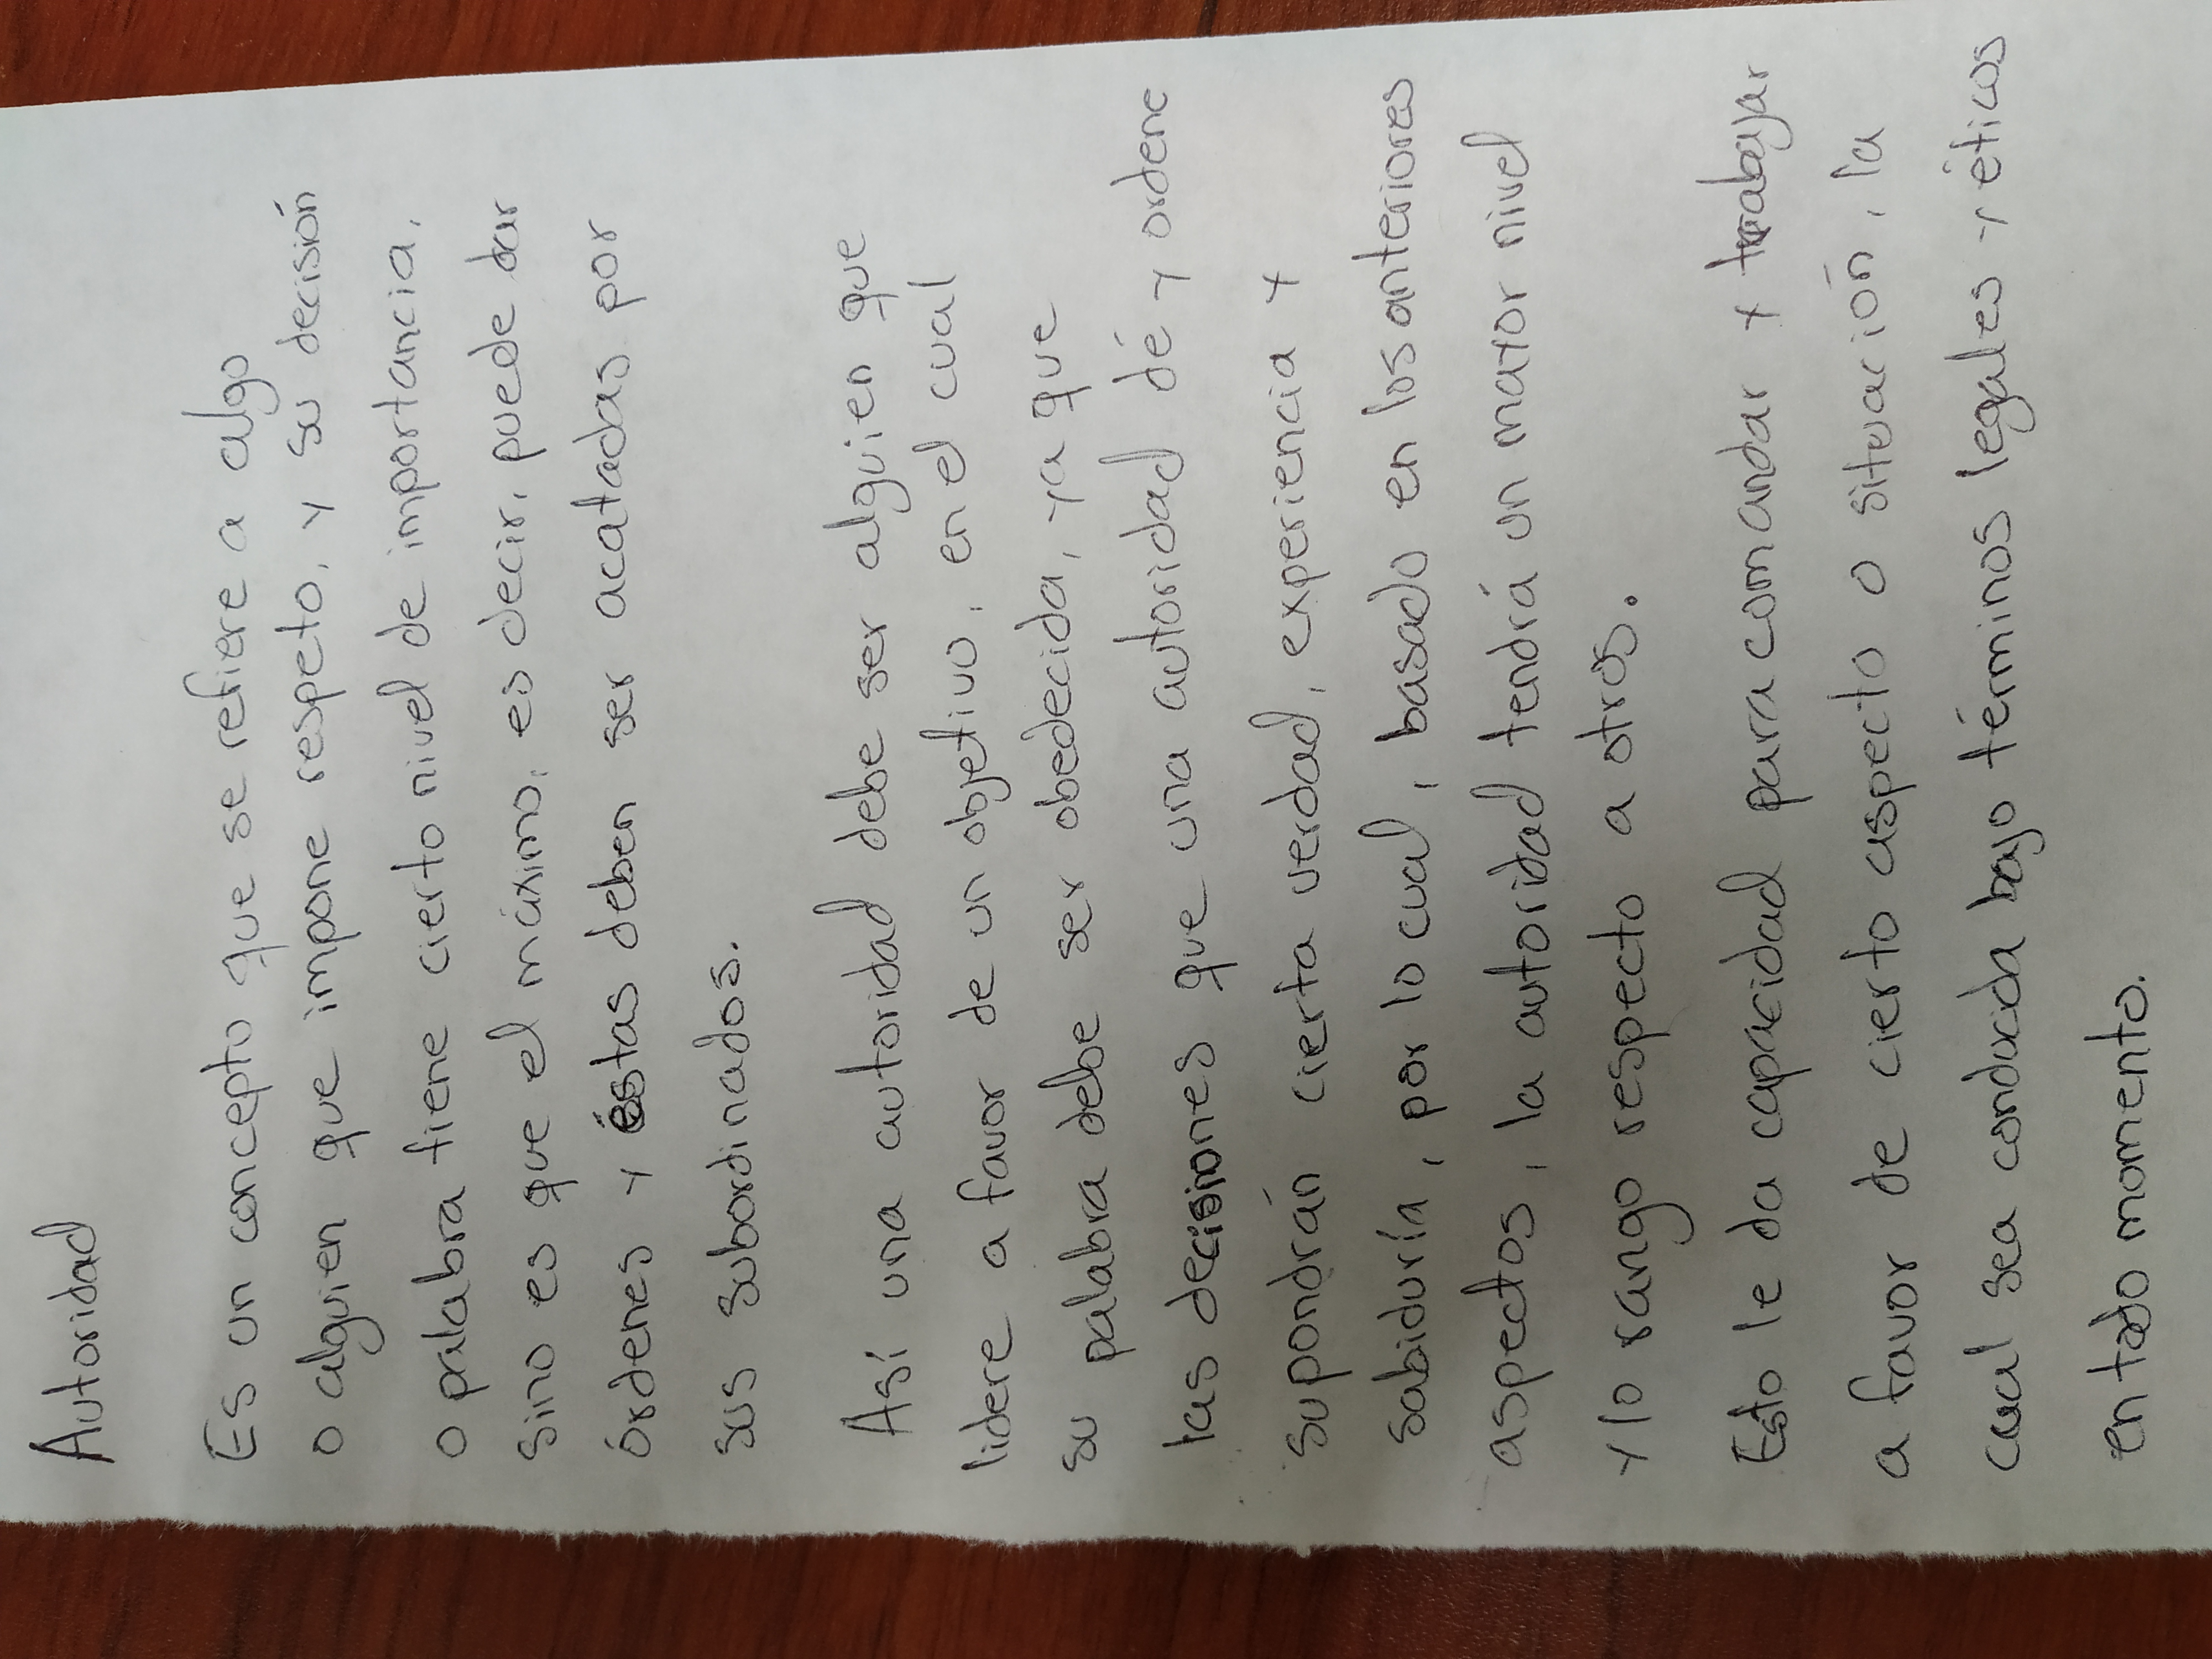 Autoridad
Es un concepto que se refiere a algo
o alguien que impone respeto, y su decisión
o palabra tiene cierto nivel de importancia,
sino es que el máximo, es decir, puede dar
órdenes y éstas deben ser acatadas por
sus subordinados.
Así una autoridad debe ser alguien que
lidere a favor de un objetivo, en el cual
su palabra debe ser obedecida, ya que
las decisiones que una autoridad dé y ordene
supondrán cierta verdad, experiencia y
sabiduría, por lo cual, basado en los anteriores
aspectos, la autoridad tendrá un mayor nivel
y/o rango respecto a otros.
Esto le da capacidad para comandar y trabajar
a favor de cierto aspecto o situación, la
cual sea conducida bajo términos legales y éticos
en todo momento.